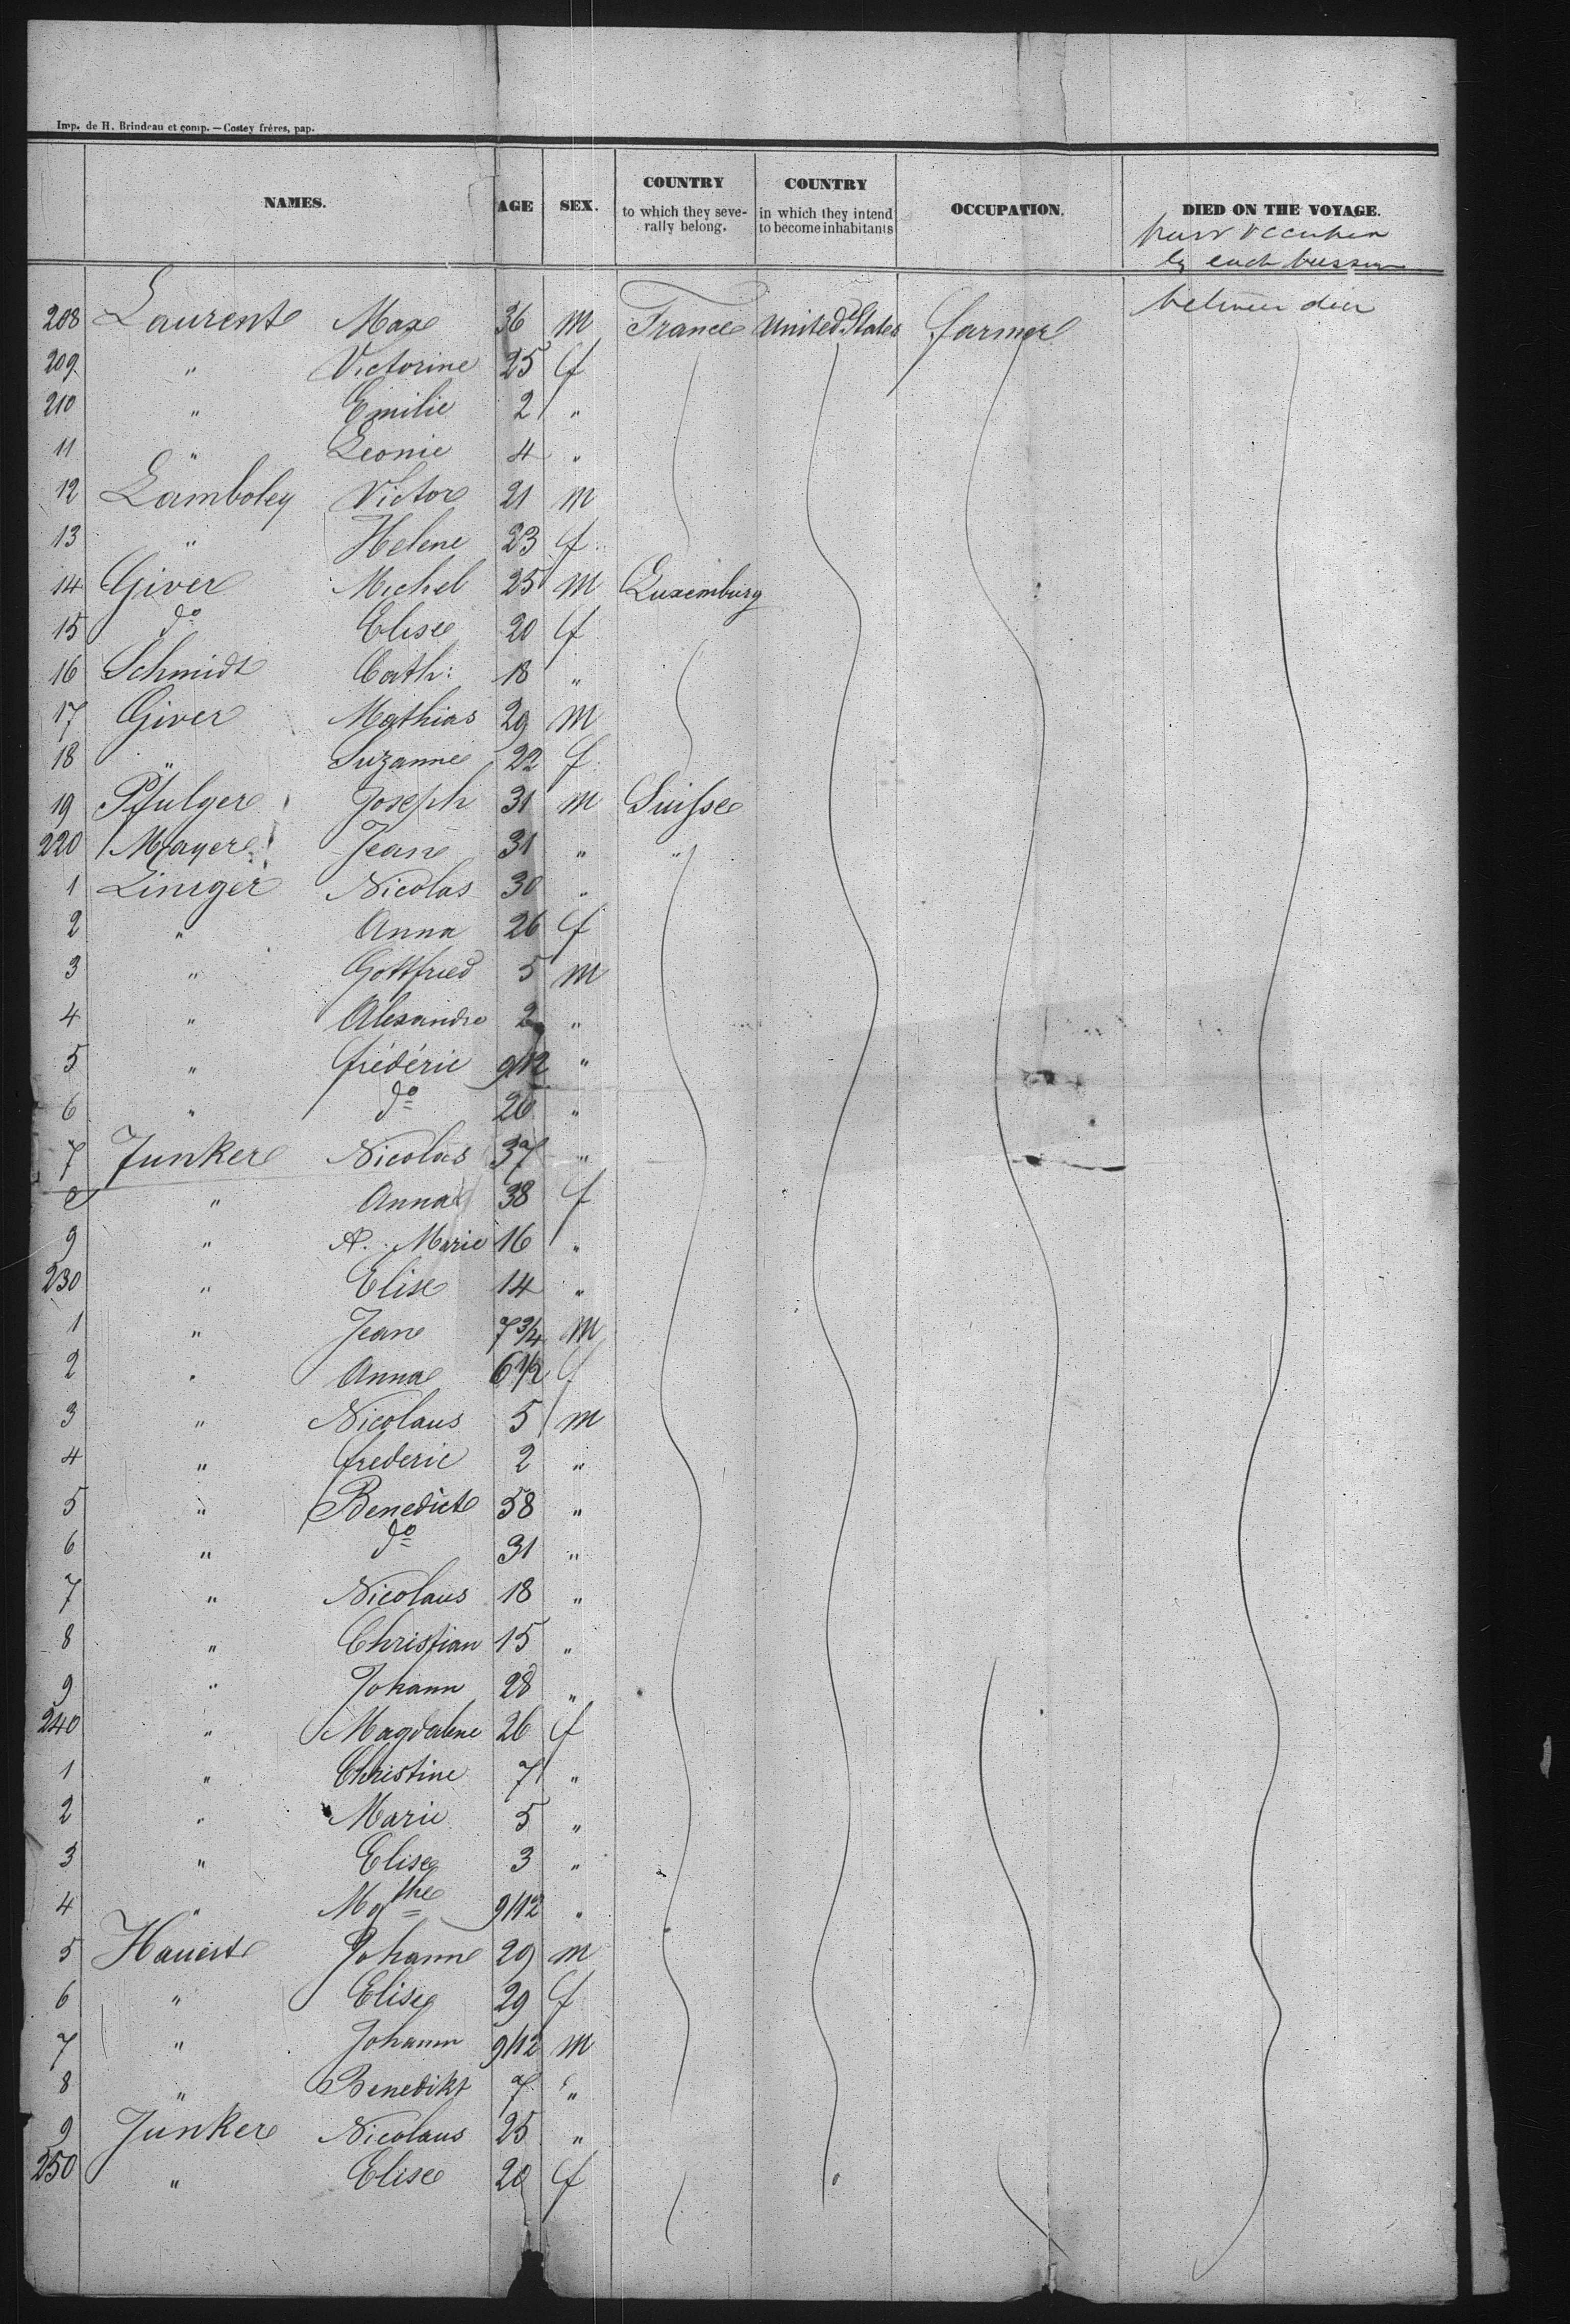 Imp. de H. Brindeau et comp. — Costey frères, pap.
NAMES. AGE SEX. COUNTRY to which they severally belong. COUNTRY in which they intend to become inhabitants OCCUPATION. DIED ON THE VOYAGE.
by each
208 Laurent Max 36 m France United States farmer between
209 " Victorine 25 f
210 " Emilie 2 "
11 " Leonie 4 "
12 Lamboley Victor 21 m
13 " Helene 23 f
14 Giver Michel 25 m Luxemburg
15 do Elise 20 f
16 Schmidt Cath: 18 "
17 Giver Mathias 29 m
18 " Suzanne 22 f
19 Pfulger Joseph 31 m Suisse
220 Mayer Jean 31 " "
1 Liniger Nicolas 30 "
2 " Anna 26 f
3 " Gottfried 5 m
4 " Alexandre 2 "
5 " frédéric 9/12 "
6 " do 26 "
7 Junker Nicolas 37 "
8 " Anna 38 f
9 " A. Marie 16 "
230 " Elise 14 "
1 " Jean 7 3/4 m
2 " Anna 6 1/2 f
3 " Nicolaus 5 m
4 " frederic 2 "
5 " Benedict 58 "
6 " do 31 "
7 " Nicolaus 18 "
8 " Christian 15 "
9 " Johann 28 "
240 " Magdalene 26 f
1 " Christine 7 "
2 " Marie 5 "
3 " Elise 3 "
4 " 9/12 "
5 Hauert Johann 29 m
6 " Elise 29 f
7 " Johann 9/12 m
8 " Benedikt 7 "
9 Junker Nicolaus 25 "
250 " Elise 20 f